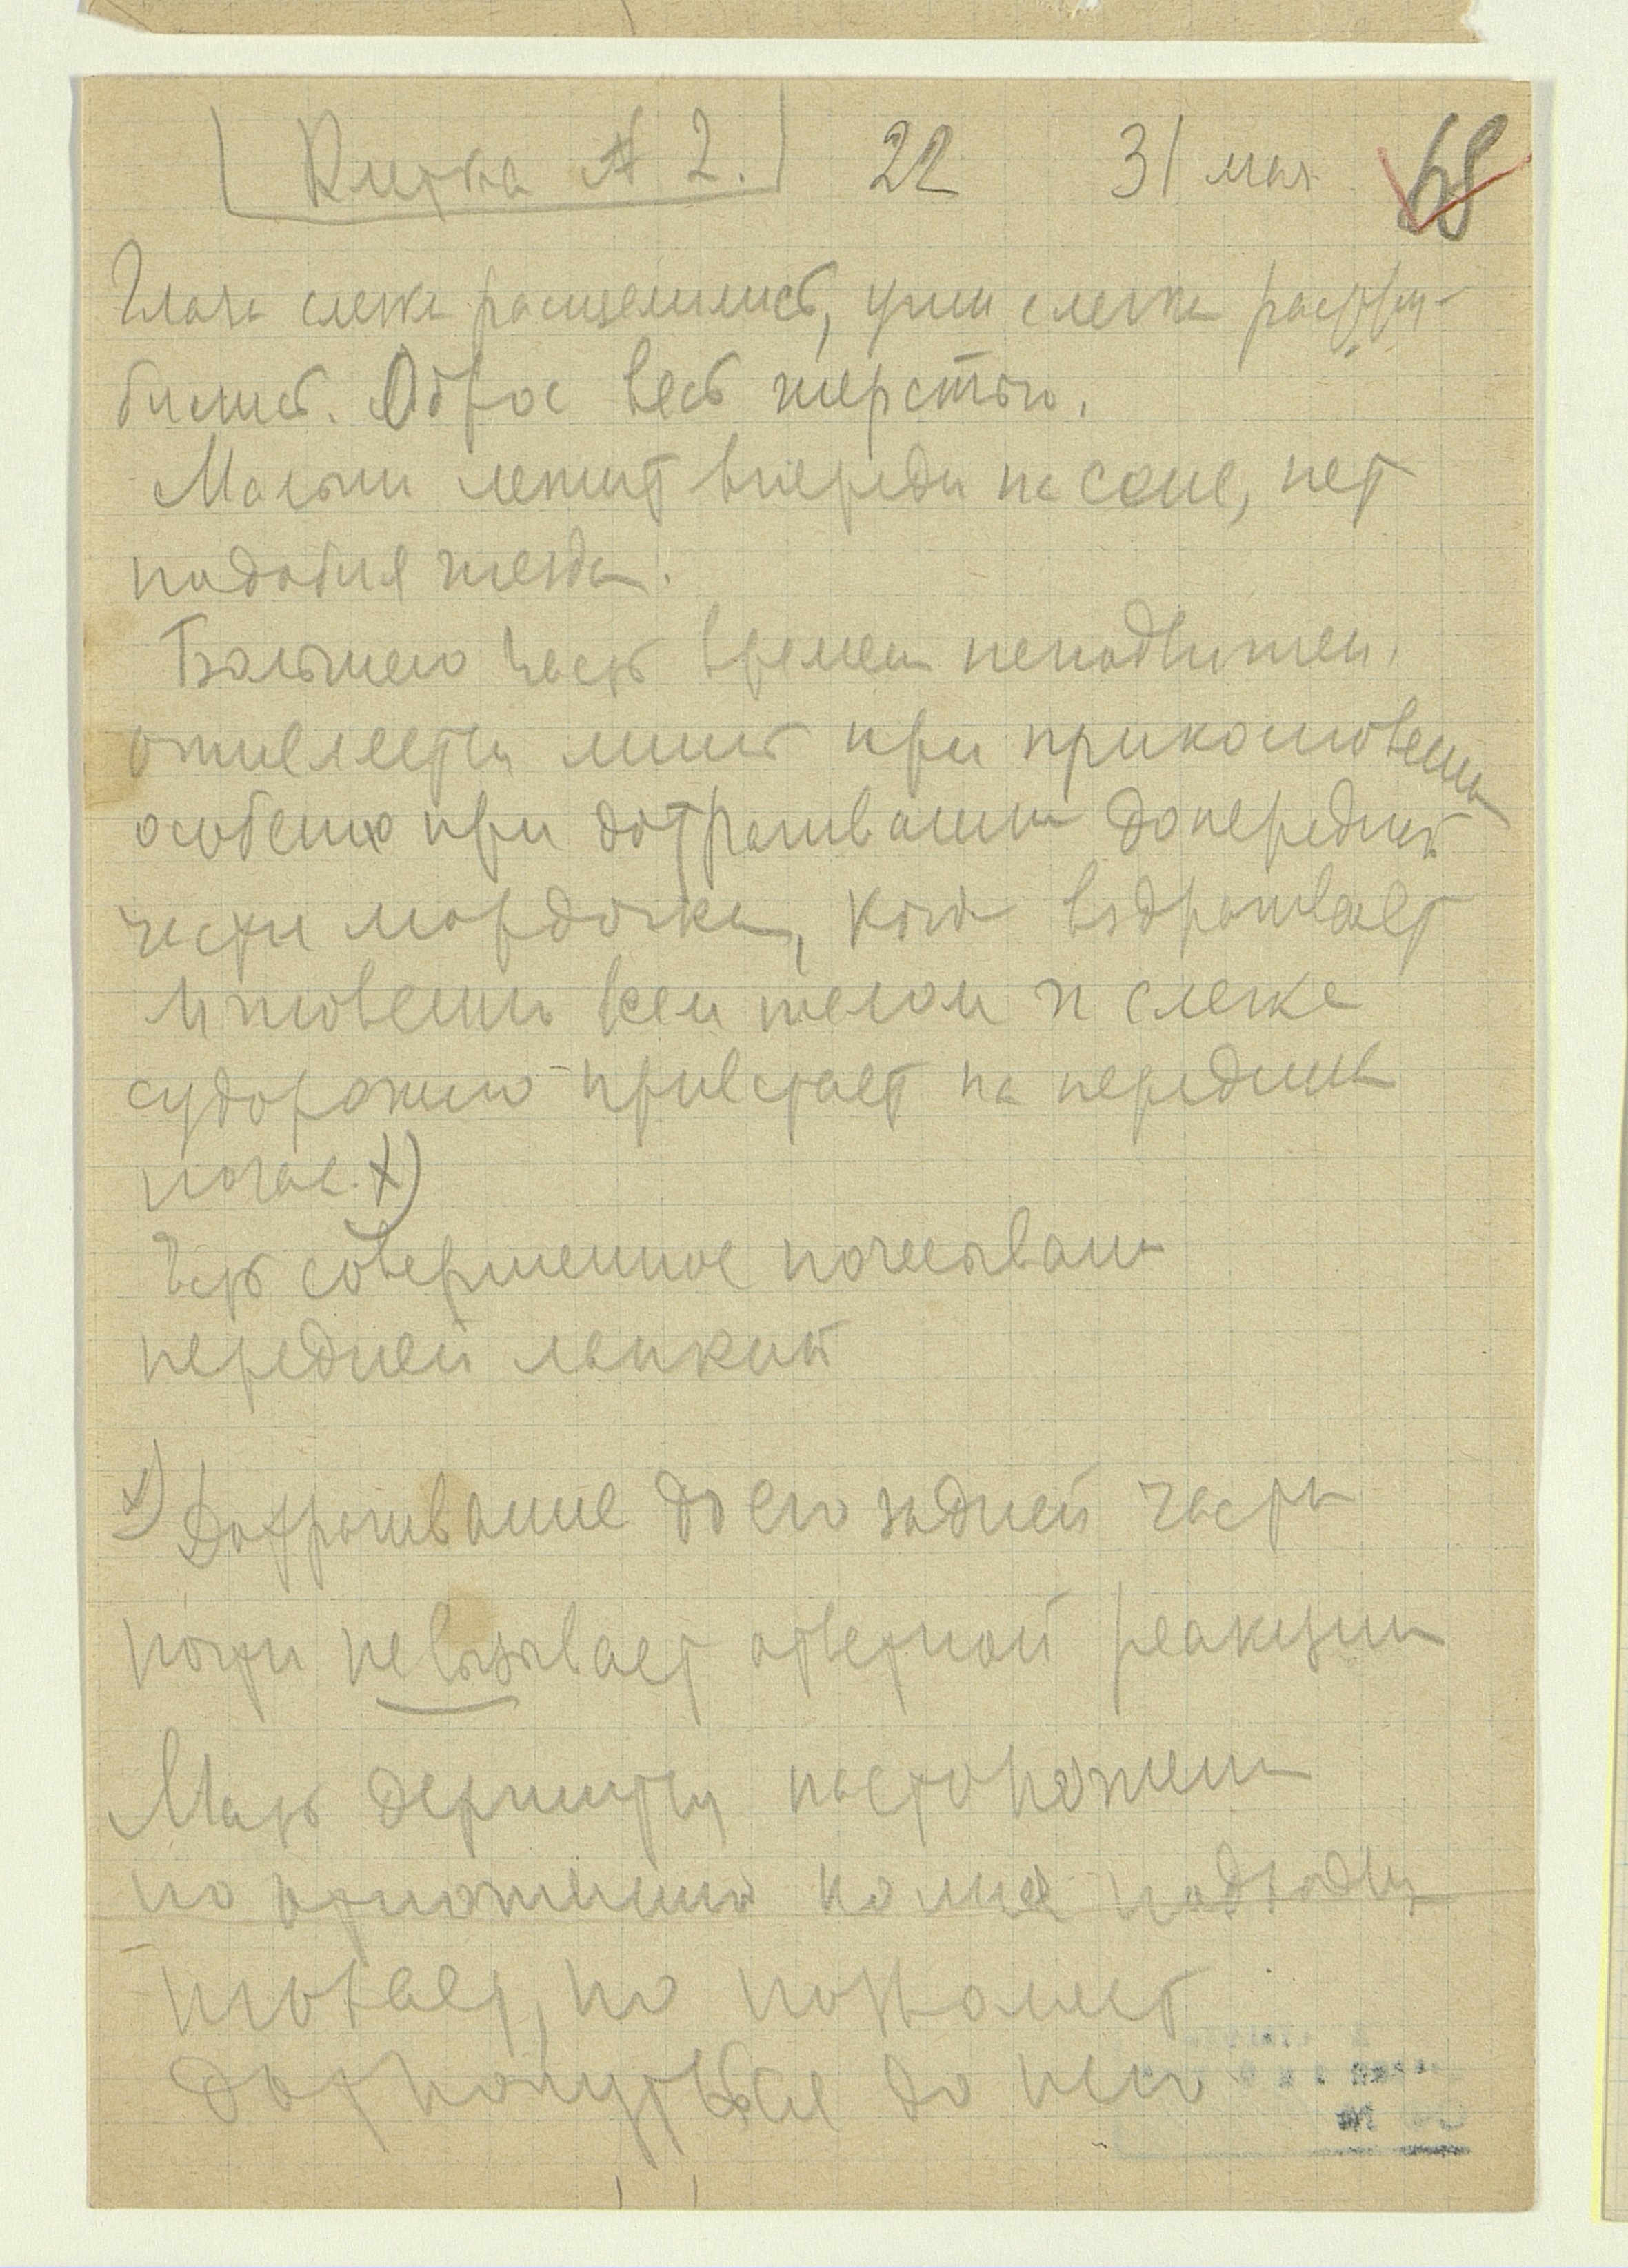 Клетка № 2. 22 31 мая 68
Глаза слегка расщемились, уши слегка раструбились
бились. Оброс весь шерстью.
Малыш лежит впереди на сене, нет
подобия гнезда.
Большею часть времени неподвижен.
оживляется лишь при прикосновении
особенно при дотрагивании до передней
части мордочки, когда вздрагивает
мгновенно всем телом и слегка
судорожно привстает на передних
ногах. х)
Есть совершенное почесывание
передней лапкой
х) Дотрагивание до его задней части
почти не вызывает ответной реакции
Мать держится настороженно
по отношению ко мне подходит
нюхает, но позволяет
дотронуться до него